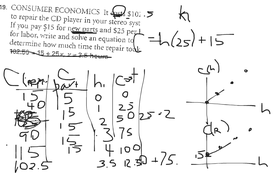 19. CONSUMER ECONOMICS It cost $102.5
to repair the CD player in your stereo syst
If you pay $15 for new parts and $25 per
for labor, write and solve an equation to
determine how much time the repair took
102.50 = 15 + 25x, x = 3.5 hours
h
= h(25) + 15
C(repair) C part h Cost
15 15 0 0
40 15 1 25
15 2 50 25×2
90 15 3 75
115 15 4 100
102.5 3.5 12.50 + 75
C(h)
h
C(R)
15
h